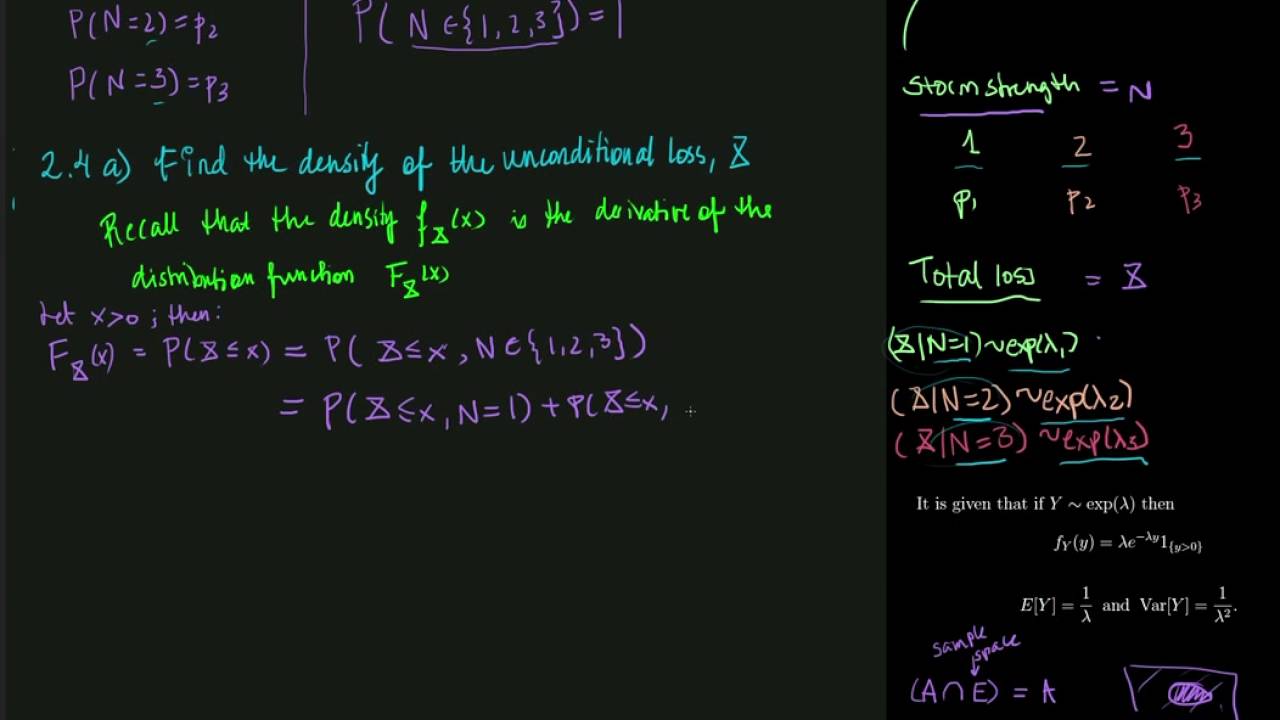 P(N=2)=p₂
P(N=3)=p₃
P(N∈{1,2,3})=1
2.4 a) Find the density of the unconditional loss, X
Recall that the density f_X(x) is the derivative of the
distribution function F_X(x)
Let x>0; then:
F_X(x) = P(X≤x) = P(X≤x, N∈{1,2,3})
= P(X≤x, N=1) + P(X≤x,
Storm strength = N
1 2 3
p₁ p₂ p₃
Total loss = X
(X|N=1)~exp(λ₁)
(X|N=2)~exp(λ₂)
(X|N=3)~exp(λ₃)
It is given that if Y ~ exp(λ) then
f_Y(y) = λe^{-λy}1_{{y>0}}
E[Y] = 1/λ and Var[Y] = 1/λ².
sample
space
(A∩E) = A